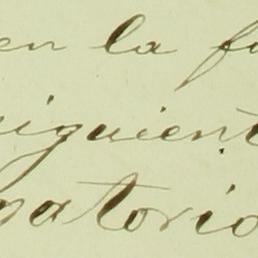 en la fu
siguient
gatorio